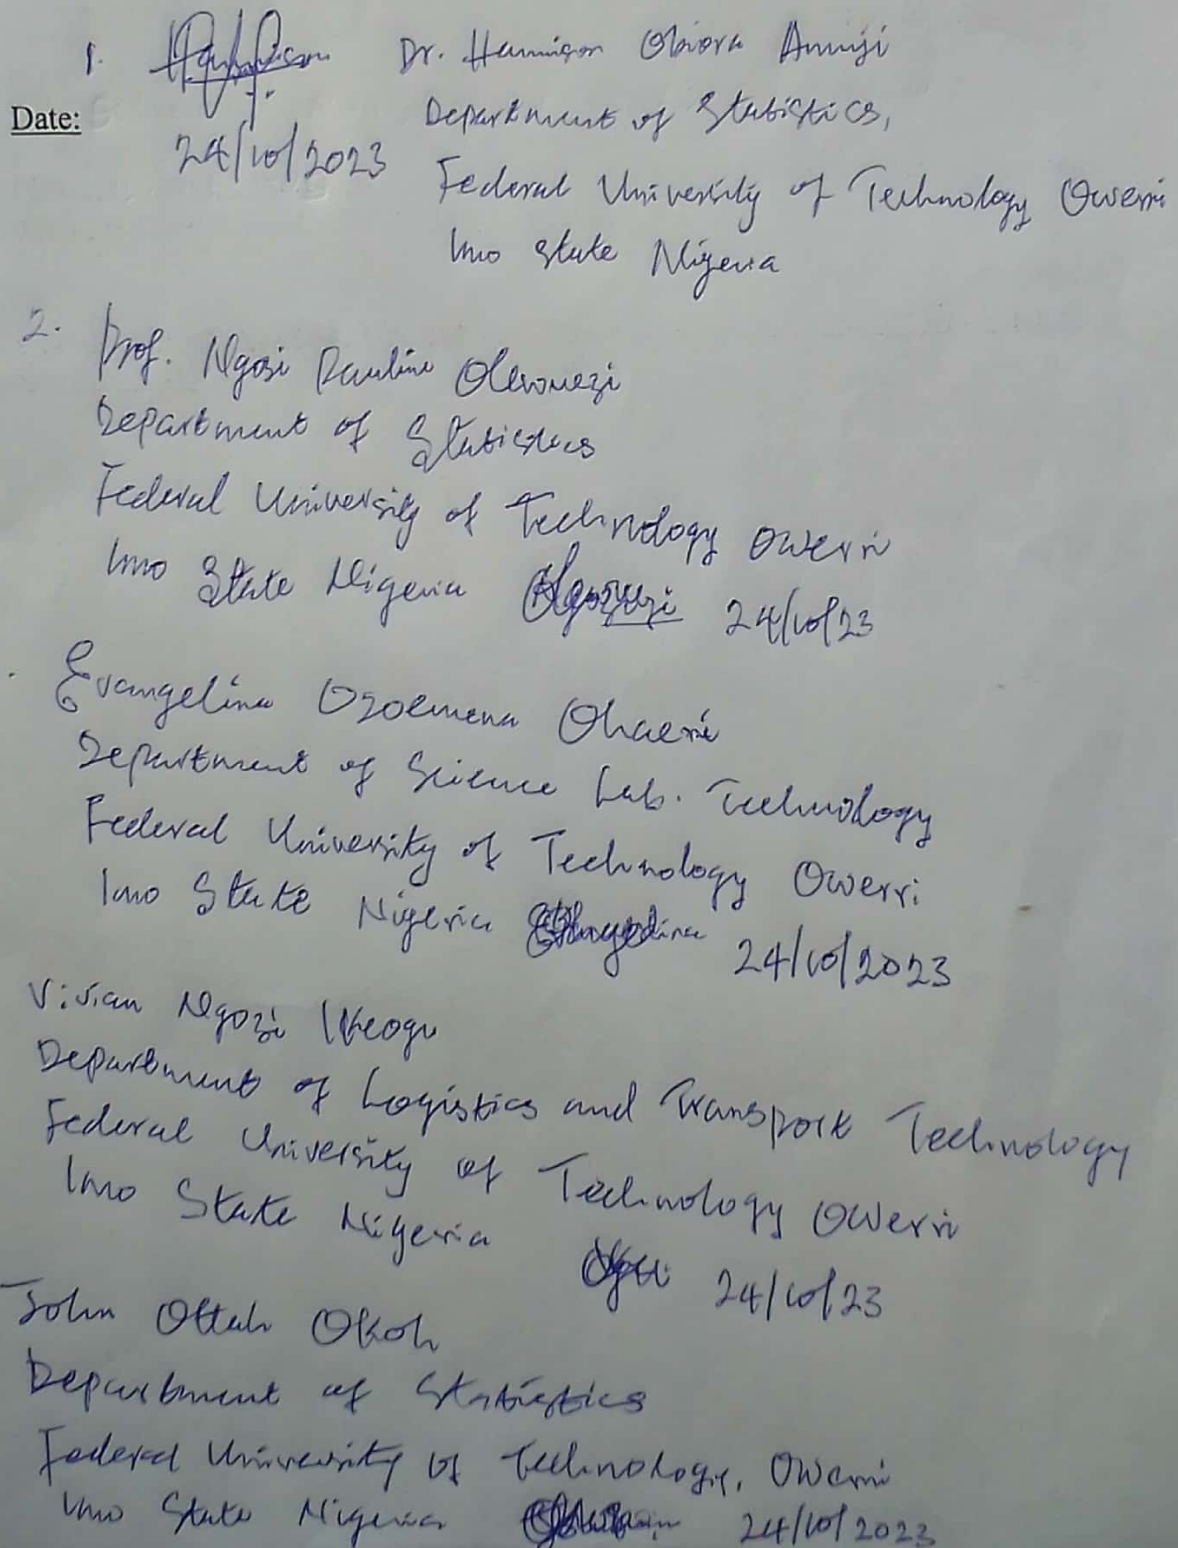 1. Dr. Harrison Obiora Amuji
Date:
Department of Statistics,
24/10/2023
Federal University of Technology Owerri
Imo State Nigeria
2. Prof. Ngozi Pauline Olewuezi
Department of Statistics
Federal University of Technology Owerri
Imo State Nigeria 24/10/23
Evangelina Ozoemena Ohaeri
Department of Science Lab. Technology
Federal University of Technology Owerri
Imo State Nigeria 24/10/2023
Vivian Ngozi Ikeogu
Department of Logistics and Transport Technology
Federal University of Technology Owerri
Imo State Nigeria 24/10/23
John Ottah Okoh
Department of Statistics
Federal University of Technology, Owerri
Imo State Nigeria 24/10/2023